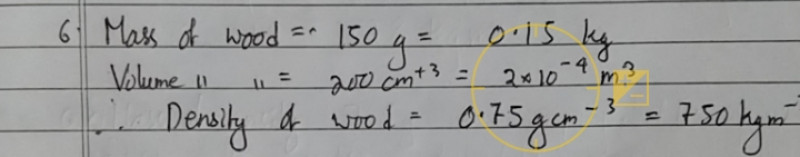 6. Mass of wood = 150 g = 0.15 kg
Volume " " = 200 cm⁺³ = 2×10⁻⁴ m³
∴ Density of wood = 0.75 g cm⁻³ = 750 kg m⁻